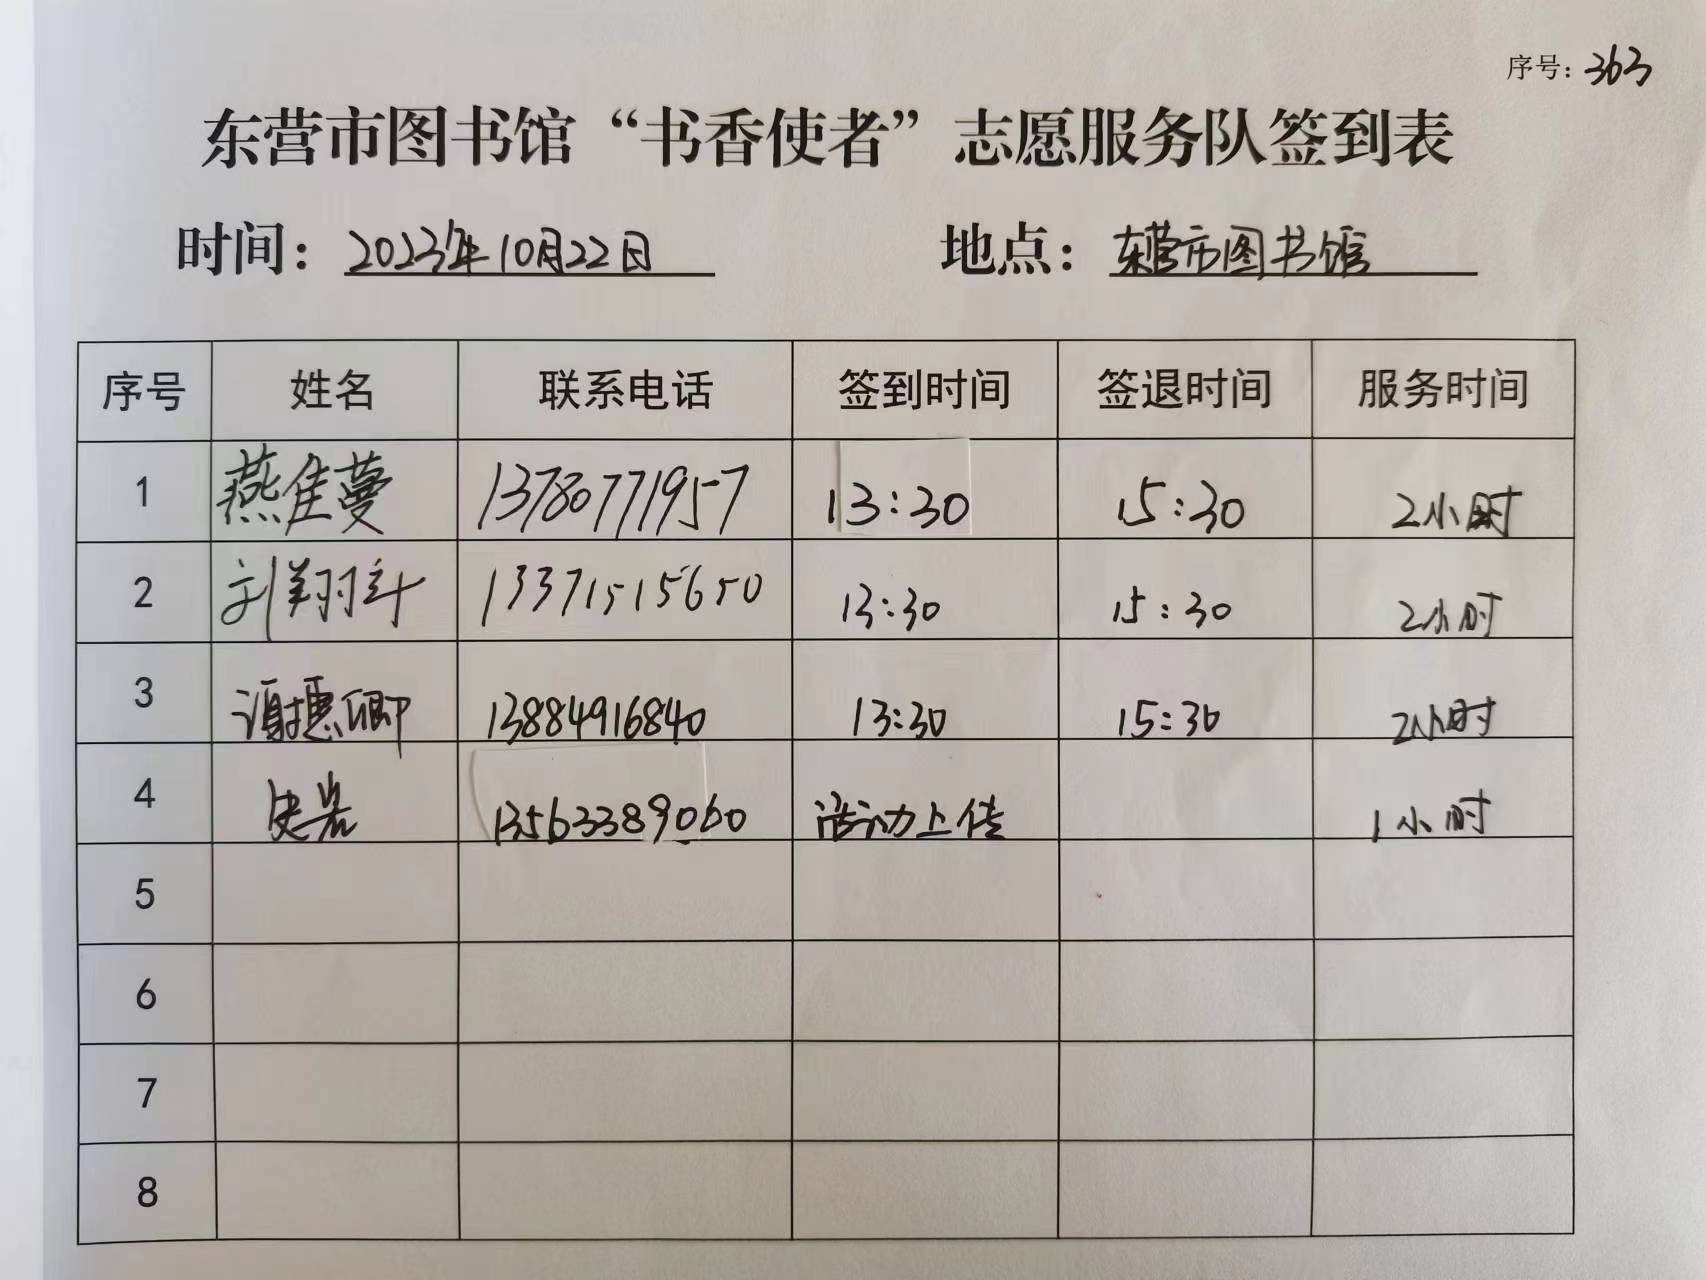 序号：363
东营市图书馆“书香使者”志愿服务队签到表
时间：2023年10月22日 地点：东营市图书馆
序号 姓名 联系电话 签到时间 签退时间 服务时间
1 燕佳蔓 13780771957 13:30 15:30 2小时
2 刘翔斗 13371515650 13:30 15:30 2小时
3 13884916840 13:30 15:30 2小时
4 史岩 13563389060 活动上传 1小时
5
6
7
8